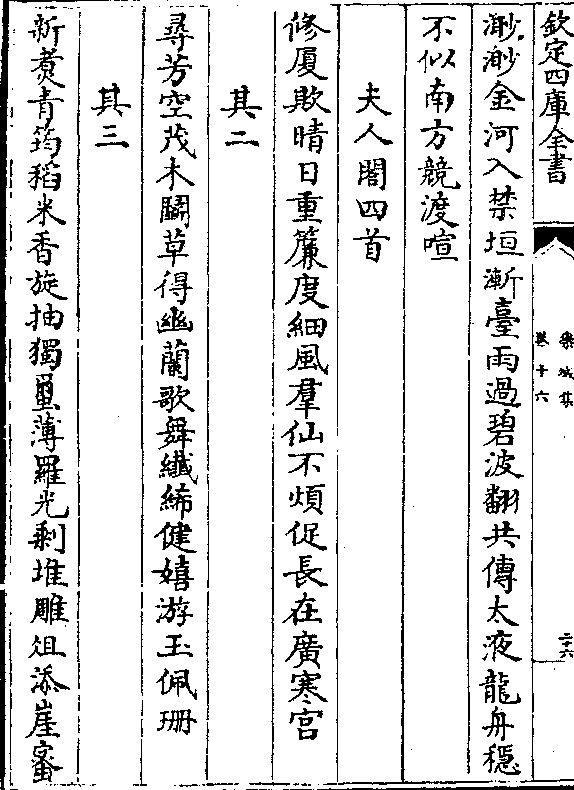 欽定四庫全書
欒城集
卷十六
二十六
渺渺金河入禁垣漸臺雨過碧波翻共傳太液龍舟穩
不似南方競渡喧
夫人閣四首
修厦欺晴日重簾度細風羣仙不煩促長在廣寒宮
其二
尋芳空茂木鬭草得幽蘭歌舞纖絺健嬉游玉佩珊
其三
新煑青筠稻米香旋抽獨蠒薄羅光剩堆雕俎添崖蜜